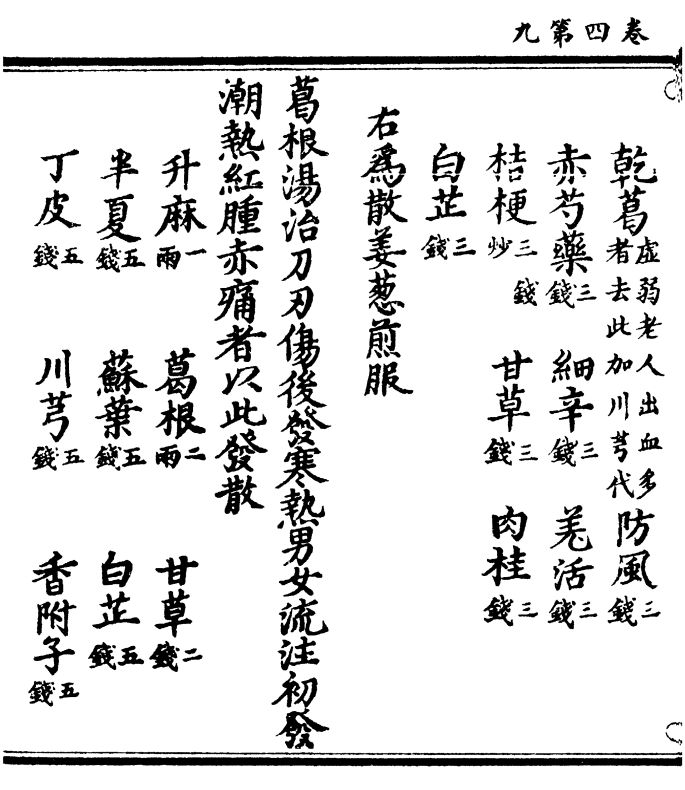 卷四第九
乾葛虛弱老人出血多者去此加川芎代防風三錢
赤芍藥三錢細辛三錢羌活三錢
桔梗三錢炒甘草三錢肉桂三錢
白芷三錢
右爲散姜葱煎服
葛根湯治刀刃傷後發寒熱男女流注初發
潮熱紅腫赤痛者以此發散
升麻一兩葛根二兩甘草二錢
半夏五錢蘇葉五錢白芷五錢
丁皮五錢川芎五錢香附子五錢